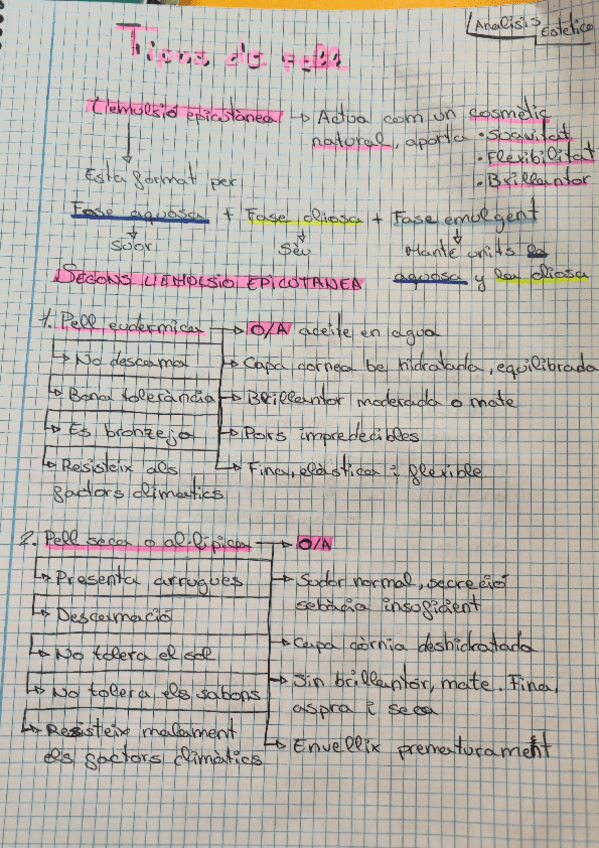 Analisis Estetica
Tipos de pell
L'emulsió epicutànea → Actua com un cosmètic
natural, aporta • Suavitat
• Flexibilitat
• Brillantor
Esta format per
Fase aquosa + Fase oliosa + Fase emulgent
Suor Sèu Manté units la
aquosa y la oliosa
SEGONS L'EMULSIÓ EPICUTANEA
1. Pell eudermica → O/A aceite en agua
→ No descama → Capa cornea be hidratada, equilibrada
→ Bona tolerància → Brillantor moderada o mate
→ Es bronzeja → Pors impredecibles
→ Resisteix als → Fina, elàstica i flexible
factors climatics
2. Pell seca o alípica → O/A
→ Presenta arrugues → Sudor normal, secreció
sebàcia insuficient
→ Descamació
→ Capa còrnia deshidratada
→ No tolera el sol
→ Sin brillantor, mate. Fina,
→ No tolera els sabons
aspra i seca
→ Resisteix malament
→ Envellix prematurament
els factors climàtics